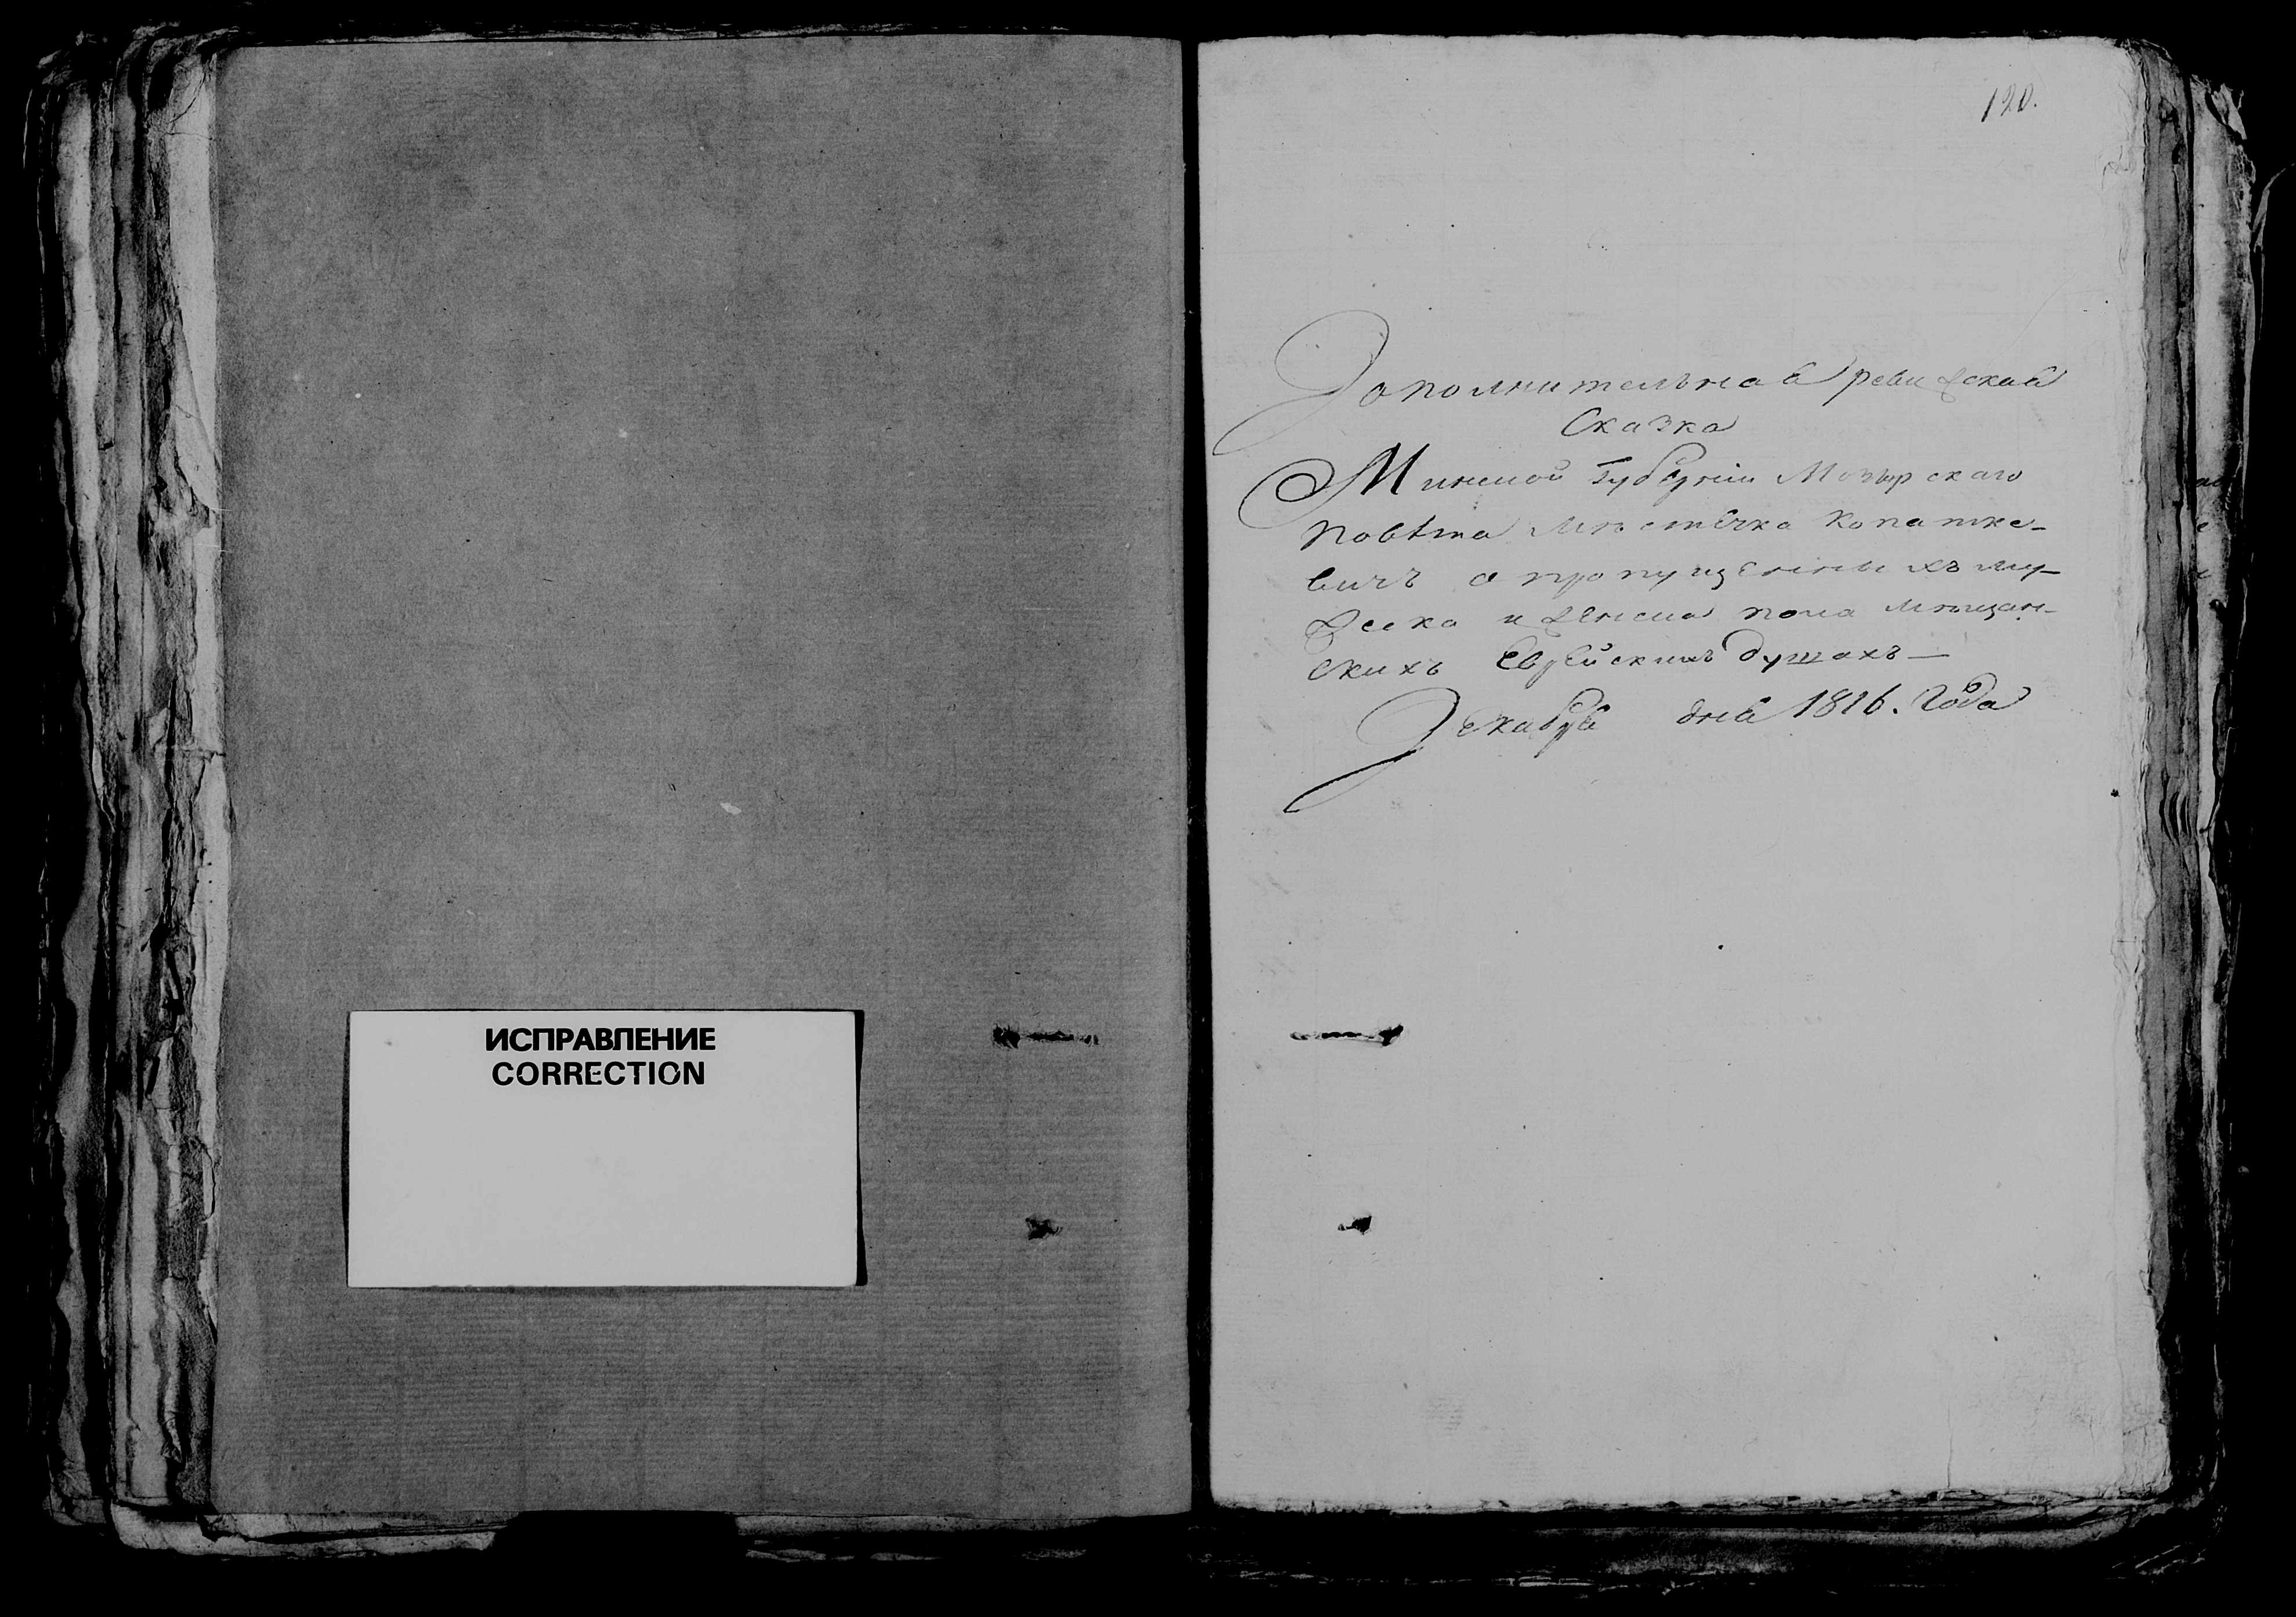 ИСПРАВЛЕНИЕ
CORRECTION
120.
Дополнительная ревижская
Сказка
Минской Губернiи Мозырскаго
повѣта мѣстечка Копатке-
вичъ о пропущенныхъ му-
жеска и женска пола мѣщан-
скихъ Еврейскихъ душахъ —
Декабря дня 1816. Года